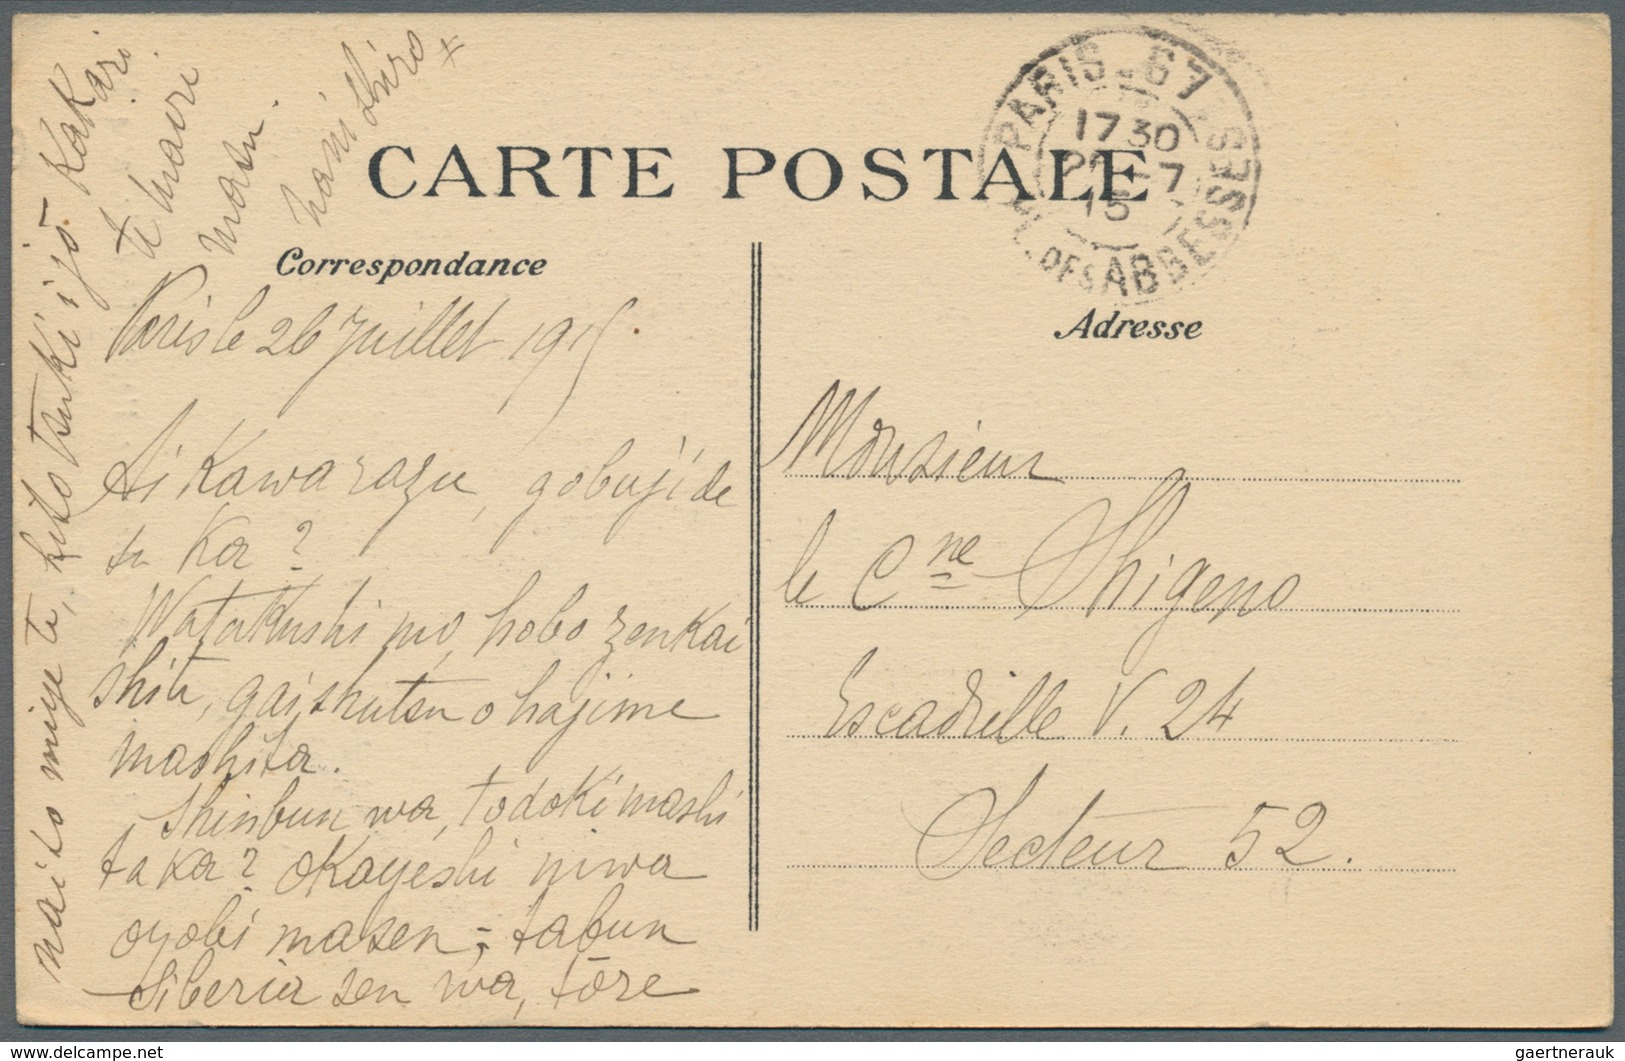 CARTE POSTALE
Correspondance
Adresse
PARIS 67
1730
7
15
DES ABBESSES
Paris le 26 Juillet 1915.
Ai Kawarazu, gobuji de
su Ka?
Watakushi mo, hobo zenkai
shite, gaishutsu o hajime
mashita.
Shinbun wa, todoki mashi
ta Ka? OKayeshi niwa
oyobi masen; tabun
Siberia sen wa, tōre
nai to miye te, hito tsuki ijō KaKari
te mairi
masu.
nani shiro
Monsieur
le Cne Shigeno
Escadrille V. 24
Secteur 52.
gaertnerauk